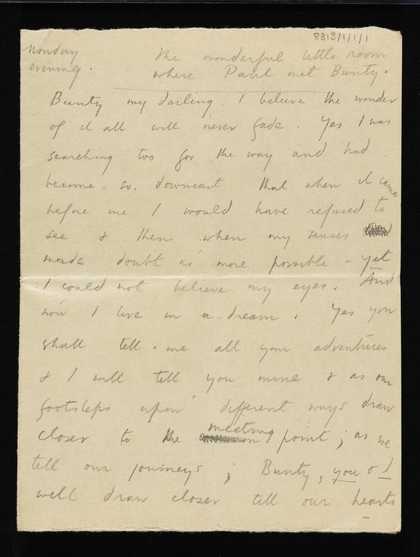 8313/1/1/1
Monday
evening.
The wonderful little room
where Paul met Bunty.
Bunty my darling I believe the wonder
of it all will never fade. Yes I was
searching too for the way and had
become so downcast that when it came
before me I would have refused to
see & then when my senses
made doubt no more possible - yet
I could not believe my eyes. And
now I live in a dream. Yes you
shall tell me all your adventures
& I will tell you mine & as our
footsteps upon different ways draw
closer to the meeting point; as we
tell our journeys; Bunty, you & I
will draw closer till our hearts